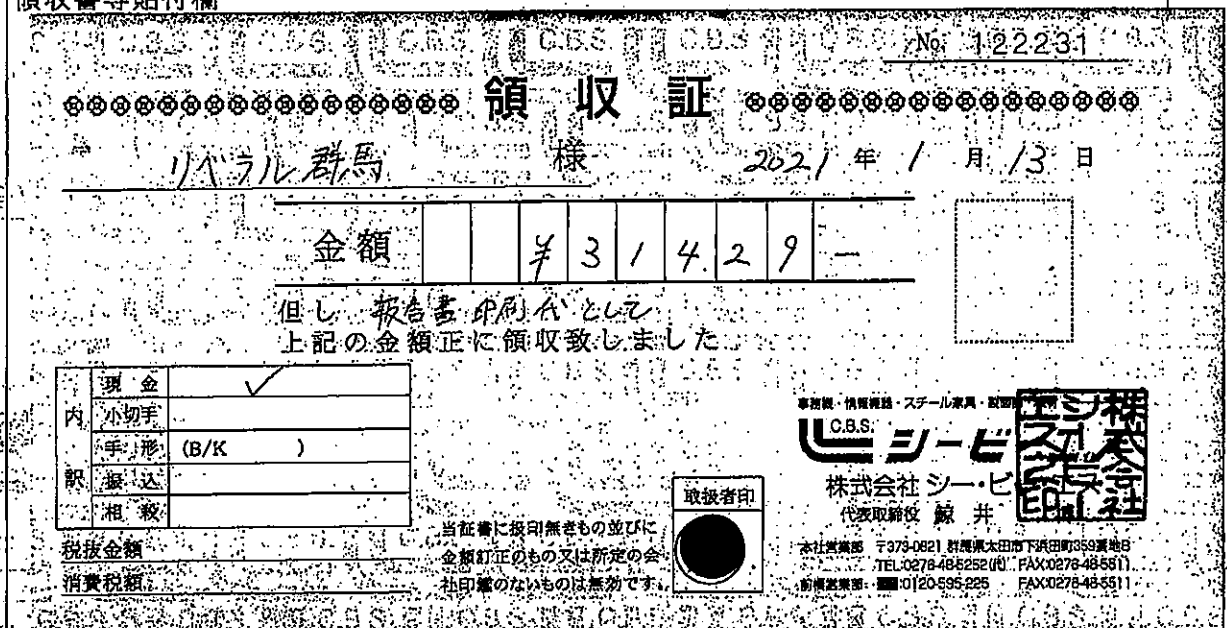 領収書等貼付欄
No. 122231
領収証
リベラル群馬 様 2021年1月13日
金額 ¥31429-
但し 報告書印刷代として
上記の金額正に領収致しました
内訳
現金 ✓
小切手
手形 (B/K )
振込
相殺
税抜金額
消費税額
当証書に扱印無きもの並びに
金額訂正のもの又は所定の会
社印鑑のないものは無効です。
取扱者印
事務機・情報機器・スチール家具・
C.B.S.
シービ
株式会社 シー・ビ
代表取締役 鯨井
本社営業部 〒373-0821 群馬県太田市下浜田町359番地8
TEL:0276-48-5252(代) FAX:0276-48-5511
前橋営業部 0120-595-225 FAX:0276-48-5511